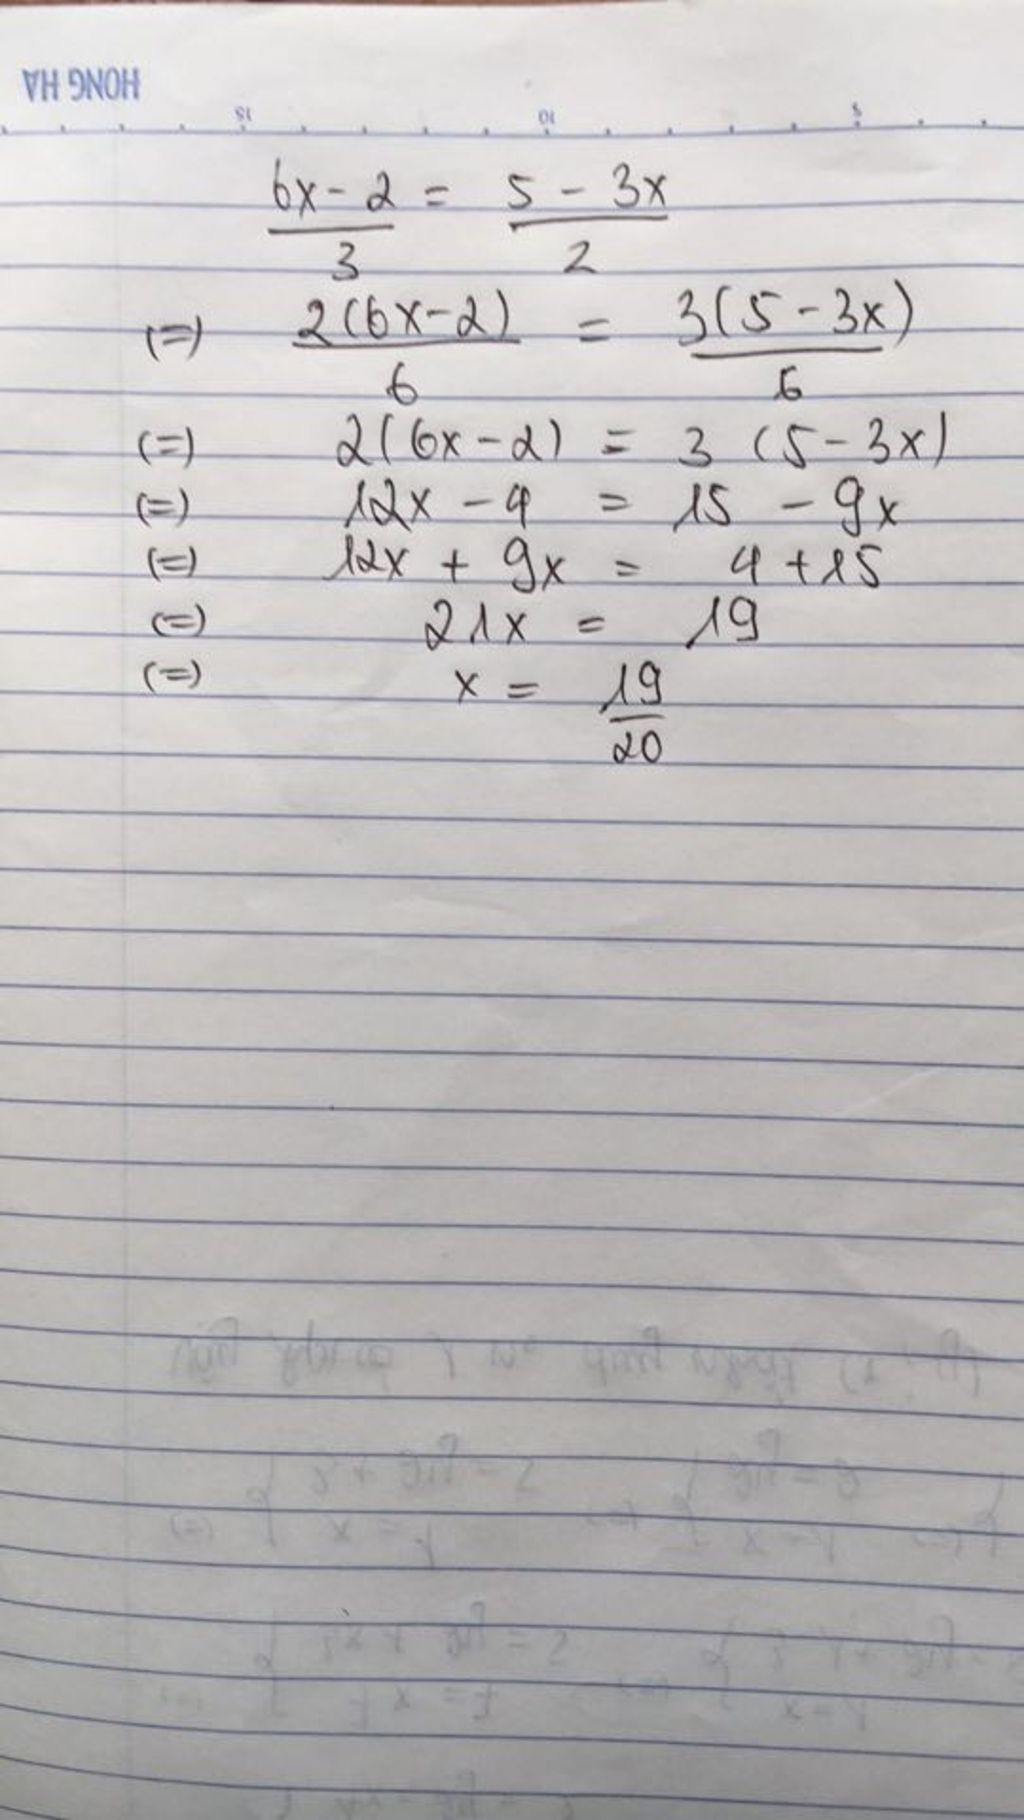 HONG HA
15 10 5
6x - 2 / 3 = 5 - 3x / 2
(=) 2(6x-2) / 6 = 3(5-3x) / 6
(=) 2(6x-2) = 3 (5-3x)
(=) 12x - 4 = 15 - 9x
(=) 12x + 9x = 4 + 15
(=) 21x = 19
(=) x = 19 / 20